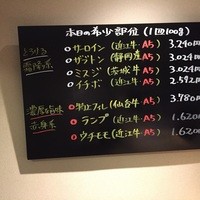 本日の希少部位（1皿100g）
とろける
霜降り系
○サーロイン（近江牛 A5） 3.240円
○ザブトン（静岡産 A5） 3.024円
○ミスジ（茨城牛 A5） 3.024円
○イチボ（近江牛 A5） 2.592円
濃厚な旨味
赤身系
○フィレ（仙台牛 A5） 3.780円
○ランプ（近江牛 A5） 1.620
○ウチモモ（近江牛 A5） 1.620